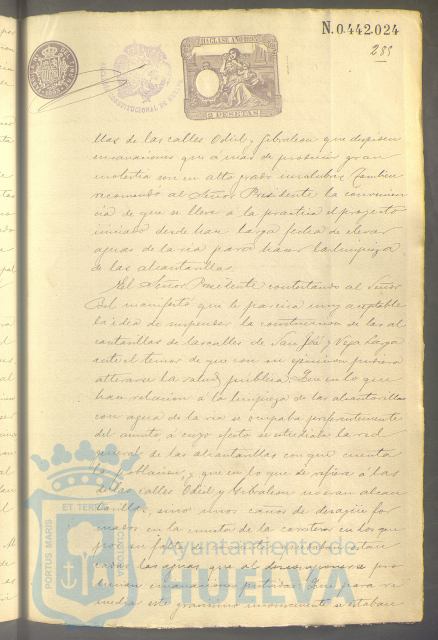 N.0.442.024
255
HAGLASE AMOR
2 PESETAS
llas de las calles Odiel y Gibraleon que despiden
emanaciones que a mas de producir gran
molestia son en alto grado insalubres. Tambien
recomendó al Señor Presidente la convenien
cia de que se lleve a la practica el proyecto
iniciado desde hace larga fecha de elevar
aguas de la ria para hacer la limpieza
de las alcantarillas.
El Señor Presidente contestando al Señor
manifestó que le parecia muy aceptable
la idea de suspender la construccion de las al
cantarillas de las calles de San José y Vega Larga
ante el temor de que con su pudiera
alterarse la salud publica. Que en lo que
hace relacion a la limpieza de las alcantarillas
con agua de la ria se ocupaba preferentemente
del asunto, á cuyo efecto se estudiaba la red
general de las alcantarillas con que cuenta
la poblacion; y que en lo que se refiere á las
de las calles Odiel y Gibraleon no eran alcan
tarillas, sino unos caños de desagüe for
mados en la cuneta de la carretera en los que
por su estan
cadas las aguas que al descomponerse pro
ducian emanaciones Que para re
mediar este gravisimo inconveniente se estaban
PORTUS MARIS ET TERRAE CUSTODIA
Ayuntamiento de
HUELVA